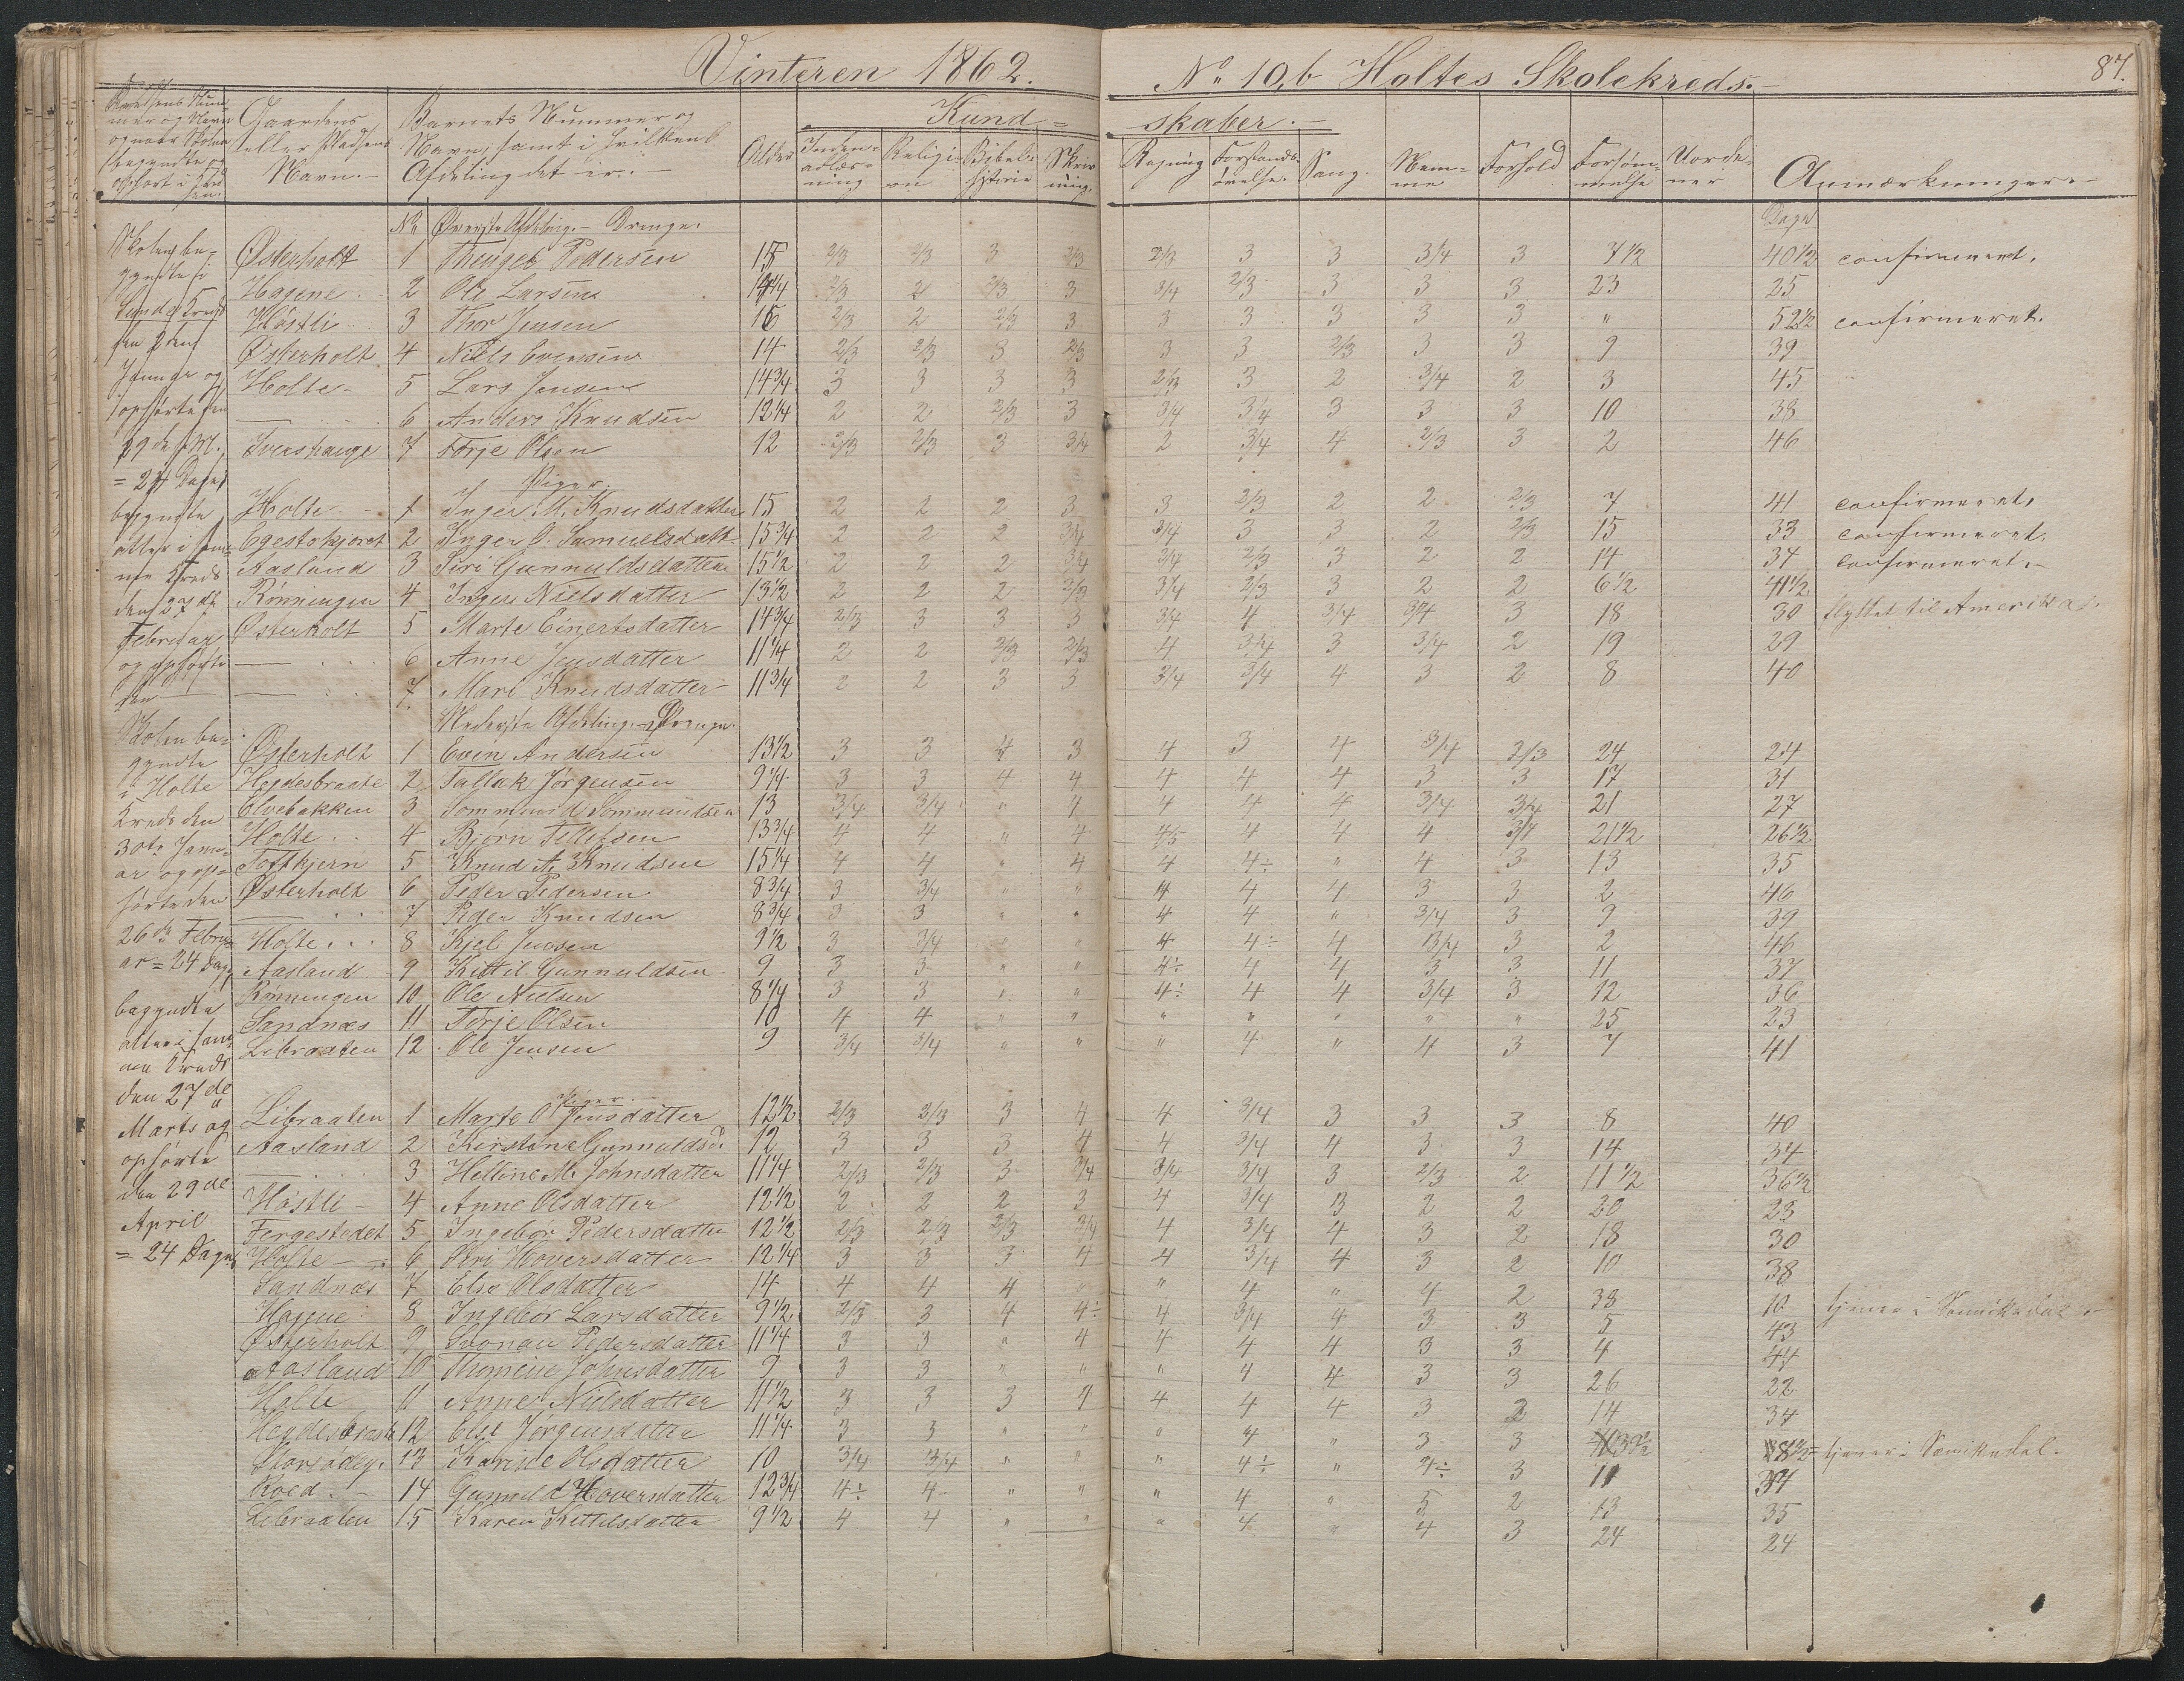 Vinteren 1862.
No 10,b Holtes Skolekreds.
87.
Gaardens eller Pladsens Navn.
Barnets Nummer og Navn, samt i hvilken Afdeling det er.
Alder
Kund-
skaber.
Religion
Bibelhistorie
Skrivning
Regning
Forstandsøvelse
Sang
Nemme
Forhold
Forsømmelse
Anmærkninger.
Dage
No Øverste Afdeling. Drenge.
Østerholt 1 Pedersen 15 2/3 2/3 3 2/3 2/3 3 3 3/4 3 7 1/2 40 1/2 confirmeret.
Hagene 2 Ole Larsen 14 1/4 2/3 2 2/3 3 3/4 2/3 3 3 3 23 25
Høstli 3 Thor Jensen 16 2/3 2 2/3 3 3 3 3 3 3 " 52 1/2 confirmeret.
Østerholt 4 Niels Evensen 14 2/3 2/3 3 2/3 3 3 2/3 3 3 9 39
Holte 5 Lars Jensen 14 3/4 3 3 3 3 2/3 3 2 3/4 2 3 45
6 Anders Knudsen 12 1/4 2 2 2/3 3 3/4 3/4 3 3 3 10 38
7 Torje Olsen 12 2/3 2/3 3 3/4 2 3/4 4 2/3 3 2 46
Piger.
Holte 1 Inger M. Knudsdatter 15 2 2 2 3 3 2/3 2 2 2/3 7 41 confirmeret.
2 Inger O. Samuelsdatt 15 3/4 2 2 2 3/4 3/4 3 3 2 2/3 15 33 confirmeret.
Aasland 3 Siri Gunnuldsdatter 15 1/2 2 2 2 3/4 3/4 2/3 3 2 2 14 34 confirmeret.
Rønningen 4 Inger Nielsdatter 13 1/2 2 2 2 2/3 3/4 2/3 3 2 2 6 1/2 41 1/2
Østerholt 5 Marte Einertsdatter 14 3/4 2/3 3 3 3 3/4 4 3/4 3/4 3 18 30 flyttet til Amerika
6 Anne Jensdatter 11 1/4 2 2 2/3 2/3 4 3/4 3 3/4 2 19 29
7 Mari Knudsdatter 11 3/4 2 2 3 3 3/4 3/4 4 3 2 8 40
Nederste Afdeling. Drenge.
Østerholt 1 Even Andersen 13 1/2 3 3 4 3 4 3 4 3/4 2/3 24 24
Hegdesbraate 2 Tallak Jørgensen 9 1/4 3 3 4 4 4 4 4 3 3 17 31
Elvebakken 3 Sommund Sommundsen 13 3/4 3/4 " 4 4 4 4 3/4 3/4 21 27
Holte 4 Bjørn Tellefsen 13 3/4 4 4 " 4 4/5 4 4 4 3/4 21 1/2 26 1/2
5 Knud A. Knudsen 15 1/4 4 4 " 4 4 4÷ " 4 3 13 35
Østerholt 6 Peder Pedersen 8 3/4 3 3/4 " " 4 4 4 3 3 2 46
7 Peder Knudsen 8 3/4 3 3 " " 4 4 " 3/4 3 9 39
Holte 8 Kjel Jensen 9 1/2 3 3/4 " " 4 4÷ 4 3/4 3 2 46
Aasland 9 Kittil Gunnuldsen 9 3 3 " " 4÷ 4 4 3 3 11 37
Rønningen 10 Ole Nielsen 8 1/4 3 3 " " 4÷ 4 4 3/4 3 12 36
Sandnæs 11 Torje Olsen 10 4 4 " " " " " " " 25 23
Libraaten 12 Ole Jensen 9 3/4 3/4 " " " 4 " 4 3 7 41
Piger.
Libraaten 1 Marte O. Jensdatter 12 1/2 2/3 2/3 3 4 4 3/4 3 3 3 8 40
Aasland 2 Kirstine Gunnuldsd. 12 3 3 3 4 4 3/4 4 3 3 14 34
3 Helline M. Johnsdatter 11 1/4 2/3 2/3 3 3/4 3/4 3/4 3 2/3 2 11 1/2 36 1/2
Høstli 4 Anne Olsdatter 12 1/2 2 2 2 3 4 3/4 3 2 2 20 23
Fergestedet 5 Ingebor Pedersdatter 12 1/2 2/3 2/3 2/3 3/4 4 3/4 4 3 2 18 30
Holte 6 Siri Hoversdatter 12 1/4 3 3 3 4 4 3/4 4 3 2 10 38
Sandnæs 7 Else Olsdatter 14 4 4 4 " " 4 " 4 2 38 10
Hagene 8 Ingebor Larsdatter 9 1/2 2/3 3 4 4÷ 4 3/4 4 3 3 5 43
Østerholt 9 Pedersdatter 11 1/4 3 3 " 4 4 4 4 3 3 4 44
Aasland 10 Thomine Johnsdatter 9 3 3 " " " 4 4 3 3 26 22
Holte 11 Anne Nielsdatter 11 1/2 3 3 3 4 4 4 4 3 3 14 34
Hegdesbraate 12 Else Jørgensdatter 11 1/4 3 3 " " " 4 " 3 3 39 1/2 8 1/2 tjener i
13 Karine Olsdatter 10 3/4 3/4 " " " 4÷ " 4÷ 3 11 37
Roed 14 Gunnild Hoversdatter 12 3/4 4÷ 4 " " " 4 " 5 2 13 35
Libraaten 15 Karen Kittelsdatter 9 1/2 4 4 " " " 4 " 4 3 24 24
Skolen begyndte i
Kreds
den 2den
Januar og
ophørte den
29de
= 24 Dage
begyndte
atter i samme Kreds
den 27de
Februar
og ophørte
den
Skolen begyndte
i Holte
Kreds den
30te Januar og ophørte den
26de Februar = 24 Dage
begyndte
atter i samme Kreds
den 27de
Marts og
ophørte
den 29de
April
= 24 Dage